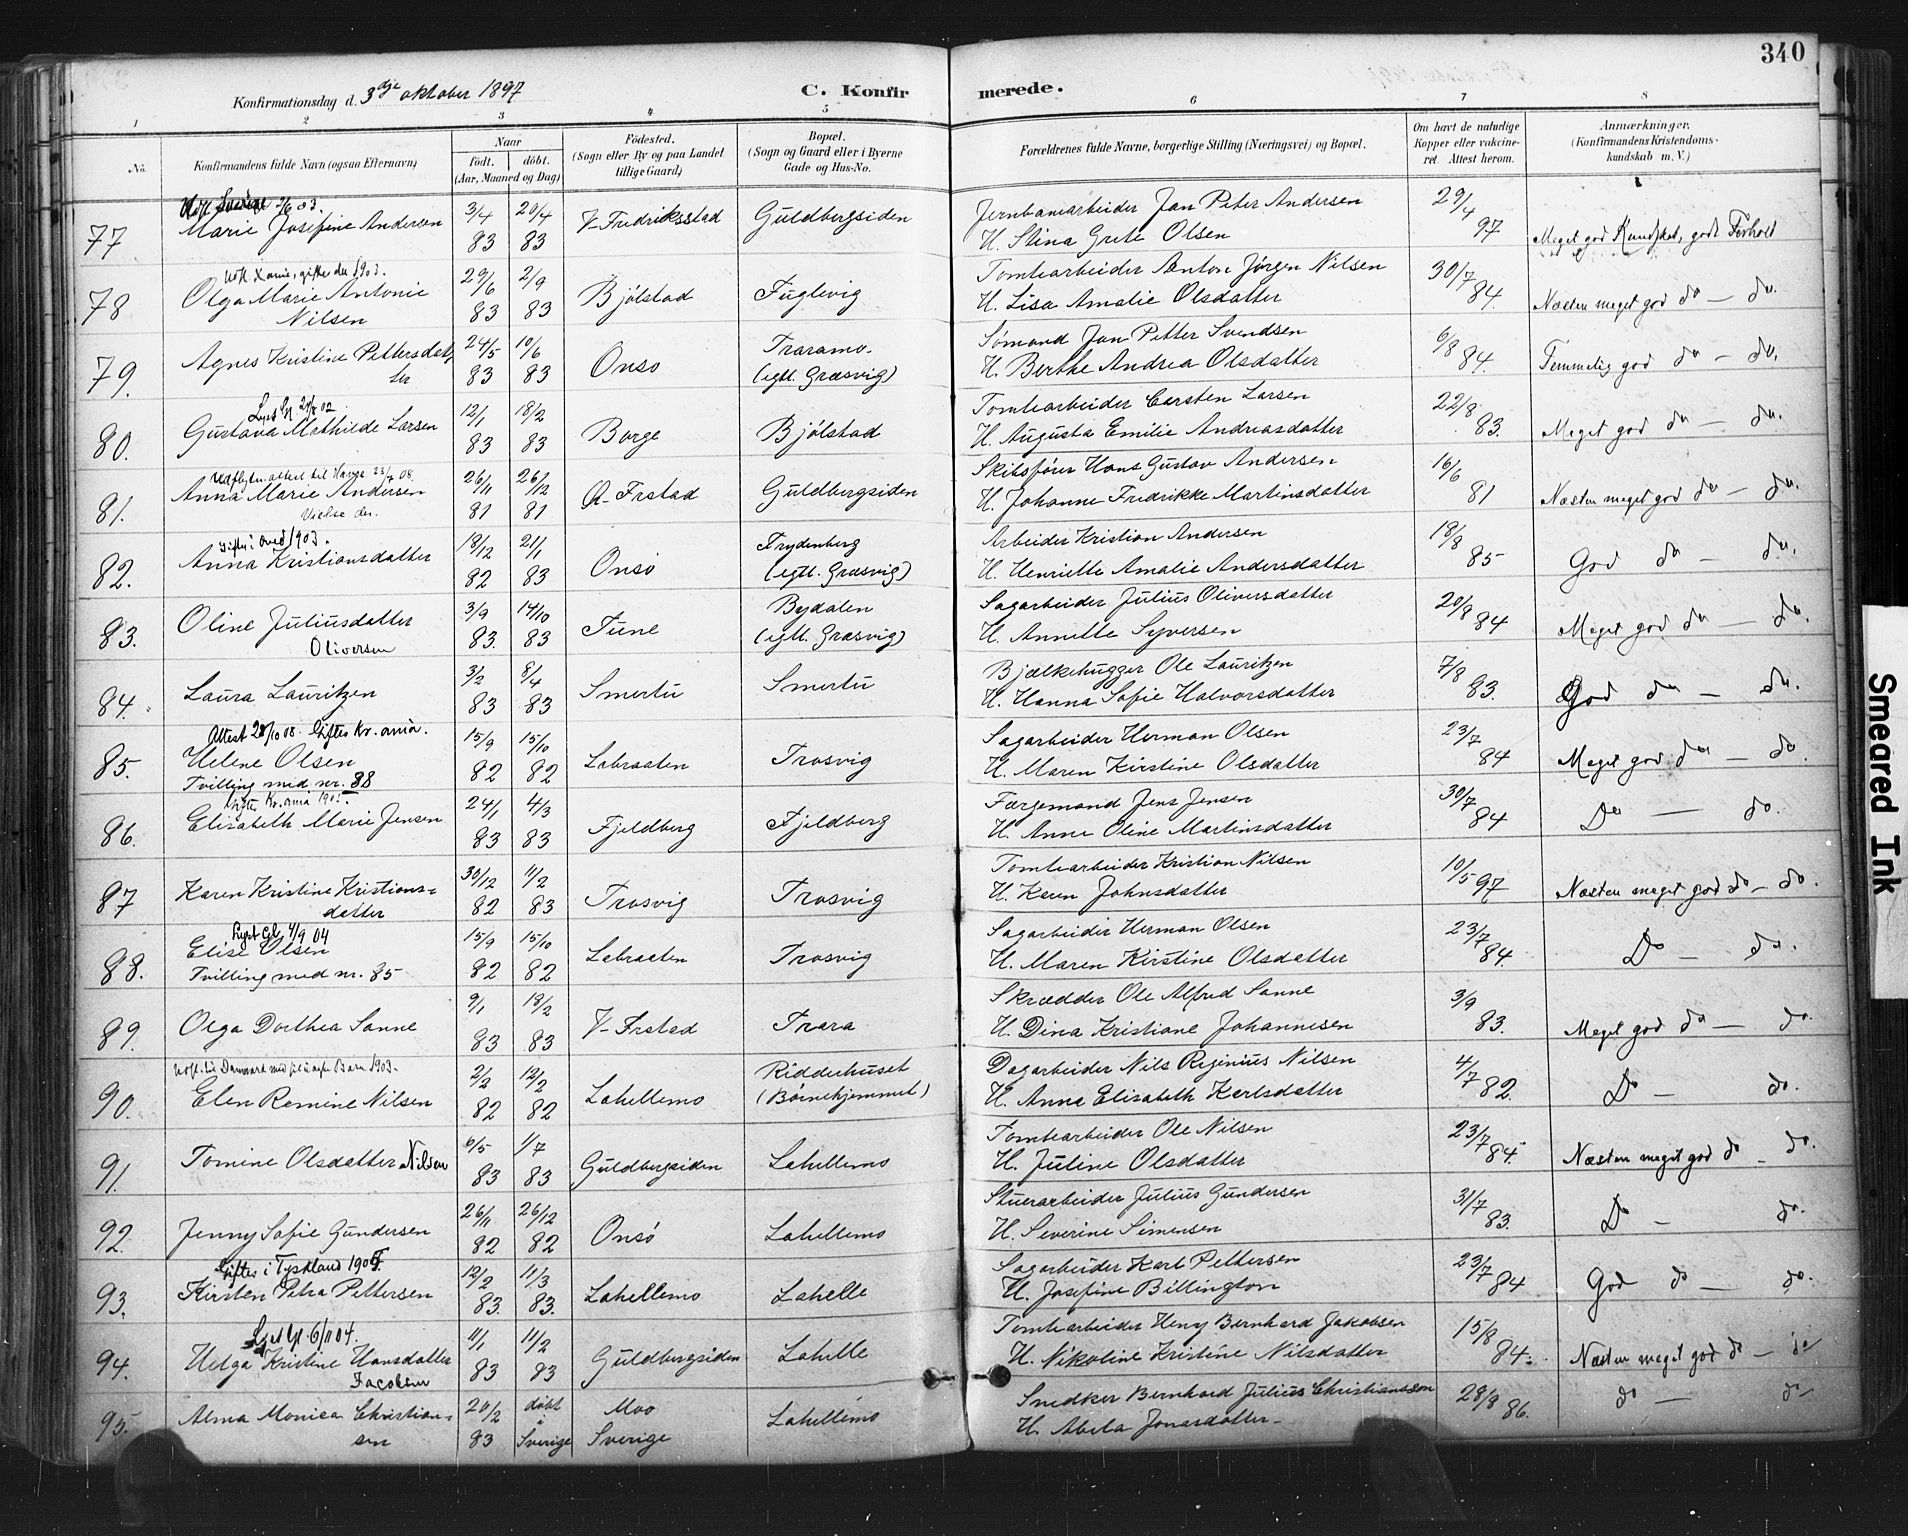 340
Konfirmationsdag d. 3dje oktober 1897 C. Konfirmerede.
1 2 3 4 5 6 7 8
No. Konfirmandens fulde Navn (ogsaa Efternavn) Naar født. døbt. (Aar, Maaned og Dag) Fødested. (Sogn eller By og paa Landet tillige Gaard) Bopæl. (Sogn og Gaard eller i Byerne Gade og Hus-No. Forældrenes fulde Navne, borgerlige Stilling (Næringsvei) og Bopæl. Om havt de naturlige Kopper eller vakcineret. Attest herom. Anmærkninger. (Konfirmandens Kristendomskundskab m. V.)
Sverige 2/6 03.
77 Marie Josefine Andersen 3/4 83 20/4 83 V-Fredriksstad Guldbergsiden Jernbanearbeider Jan Peter Andersen
H. Stina Grete Olsen 29/4 97 Meget god Kundskab, godt Forhold
gifter der 1903.
78 Olga Marie Antonie Nilsen 29/6 83 2/9 83 Bjølstad Fuglevig Tomtearbeider Anton Jørgen Nilsen
H. Lisa Amalie Olsdatter 30/7 84. Næsten meget god do — do.
79. Agnes Kristine Pettersdatter 24/5 83 10/6 83 Onsø Traramo. (egtl. Græsvig) Sømand Jan Petter Svendsen
H. Berthe Andrea Olsdatter 6/8 84. Temmelig god do — do.
Lyst Gl 24/8 02
80. Gustava Mathilde Larsen 12/1 83 18/2 83 Borge Bjølstad Tomtearbeider Carsten Larsen
H. Augusta Emilie Andreasdatter 22/8 83. Meget god do — do.
Udflytn. attest til 23/7 08.
81. Anna Marie Andersen 26/11 81 26/12 81 Ø-Frstad Guldbergsiden Skibsfører Hans Gustav Andersen
Vielse der.
H. Johanne Fredrikke Martinsdatter 16/6 81 Næsten meget god do — do.
Gifter i 1903.
82. Anna Kristiansdatter 18/12 82 21/1 83 Onsø Frydenberg (egtl. Græsvig) Arbeider Kristian Andersen
H. Henriette Amalie Andersdatter 18/8 85 God do — do.
83. Oline Juliusdatter Oliversen 3/9 83. 14/10 83 Tune Bydalen (egtl. Græsvig) Sagarbeider Julius Oliversdatter
H. Annette Syversen 20/8 84 Meget god do — do.
84. Laura Lauritzen 3/2 83 8/4 83 Smertu Smertu Bjælkehugger Ole Lauritzen
H. Hanna Sofie Halvorsdatter 7/8 83. God do — do.
Attest 28/10 08. Giftes Kr.ania.
85. Helene Olsen 15/9 82 15/10 82 Labraaten Trosvig Sagarbeider Herman Olsen
Tvilling med nr. 88
H. Maren Kirstine Olsdatter 23/7 84 Meget god do — do.
Giftes Kr.ania 1905.
86. Elisabeth Marie Jensen 24/1 83 4/3 83 Fjeldberg Fjeldberg Færgemand Jens Jensen
H. Anne Oline Martinsdatter 30/7 84 Do — do.
87 Karen Kristine Kristiansdatter 30/12 82 11/2 83 Trosvig Trosvig Tomtearbeider Kristian Nilsen
H. Karen Johnsdatter 10/5 97 Næsten meget god do — do.
Lyst Gl. 4/9 04
88. Elise Olsen 15/9 82 15/10 82 Labraaten Trosvig Sagarbeider Herman Olsen
Tvilling med nr. 85
H. Maren Kirstine Olsdatter 23/7 84. Do — do.
89. Olga Dorthea Sanne 9/1 83 18/2 83 V-Frstad Trara Skrædder Ole Alfred Sanne
H. Dina Kristiane Johannesen 3/9 83. Meget god do — do.
Danmark med Barn 1903.
90. Elen Romine Nilsen 2/2 82 12/2 82 Lahellemo Ridderhuset (Børnehjemmet) Dagarbeider Nils Reginius Nilsen
H. Anna Elisabeth Karlsdatter 4/7 82. Do — do.
91. Tomine Olsdatter Nilsen 6/5 83 1/7 83 Guldbergsiden Lahellemo Tomtearbeider Ole Nilsen
H. Juline Olsdatter 23/7 84. Næsten meget god do — do.
92. Jenny Sofie Gundersen 26/11 82 26/12 82 Onsø Lahellemo Stuerarbeider Julius Gundersen
H. Severine Simensen 31/7 83. Do — do.
Gifter i Tyskland
93. Kirsten Petra Pettersen 12/2 83. 11/3 83. Lahellemo Lahelle Sagarbeider Karl Pettersen
H. Josefine Billington 23/7 84 God do — do.
Lyst Gl. 6/11 04.
94. Helga Kristine Hansdatter Jacobsen 11/1 83 11/2 83 Guldbergsiden Lahelle Tomtearbeider Heny Bernhard Jakobsen
H. Nikoline Kristine Nilsdatter 15/8 84. Næsten meget god do — do
95. Alma Monica Christiansen 20/2 83 døbt i Sverige Moo Sverige Lahellemo Snedker Bernhard Julius Christianssen
H. Abela Jonasdatter 28/8 86. do — do
Smeared Ink